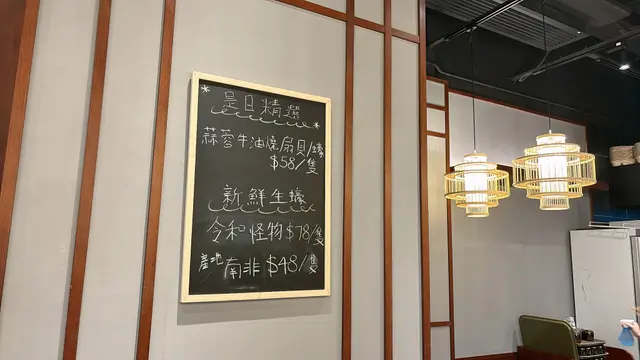 *是日精選*
蒜蓉牛油燒扇貝/蠔
$58/隻
新鮮生蠔
令和怪物$78/隻
產地南非$48/隻